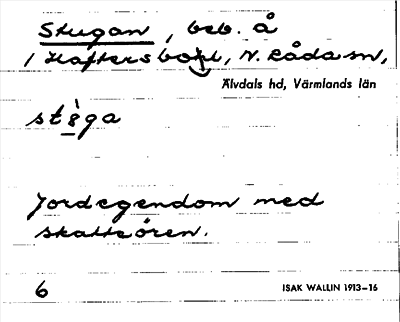 Stugan, beb. å
1 Haftersbol, N. Råda sn,
Älvdals hd, Värmlands län
Jordegendom med
skatteören.
6
ISAK WALLIN 1913–16